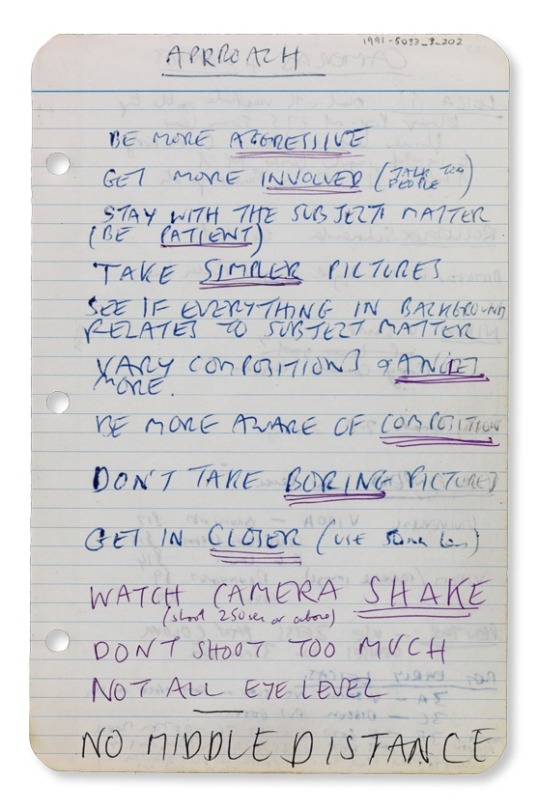 1991-5037_3_202
APRROACH
BE MORE AGGRESSIVE
GET MORE INVOLVED (TALK TOO
PEOPLE)
STAY WITH THE SUBJECT MATTER
(BE PATIENT)
TAKE SIMPLER PICTURES
SEE IF EVERYTHING IN BACKGROUND
RELATES TO SUBJECT MATTER
VARY COMPOSITIONS & ANGLES
MORE.
BE MORE AWARE OF COMPOSITION
DON'T TAKE BORING PICTURES
GET IN CLOSER (USE 50mm LENS)
WATCH CAMERA SHAKE
(shoot 250sec or above)
DON'T SHOOT TOO MUCH
NOT ALL EYE LEVEL
NO MIDDLE DISTANCE